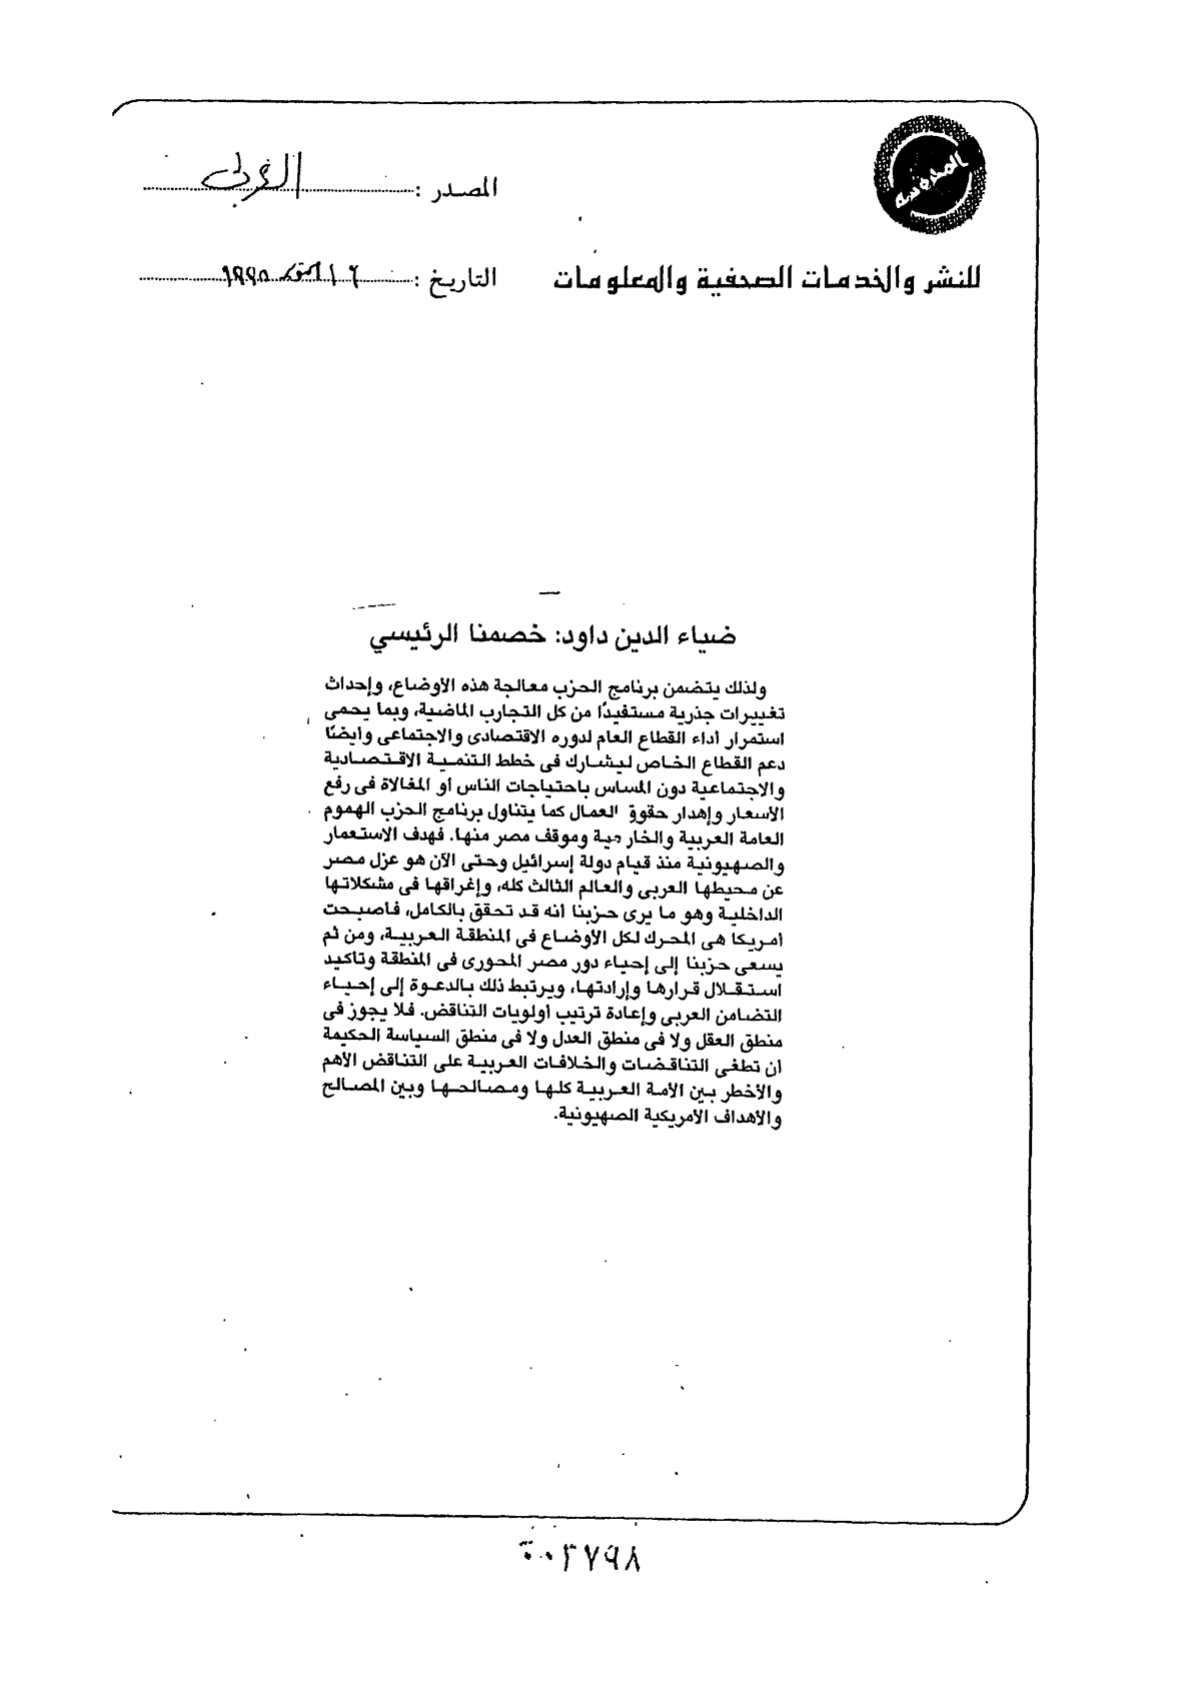 المدينة
المصدر : العربى
للنشر والخدمات الصحفية والمعلومات
التاريخ : ١٦ اكتوبر ١٩٩٥
ضياء الدين داود: خصمنا الرئيسي
ولذلك يتضمن برنامج الحزب معالجة هذه الأوضاع، وإحداث
تغييرات جذرية مستفيدًا من كل التجارب الماضية، وبما يحمى
استمرار أداء القطاع العام لدوره الاقتصادى والاجتماعى وأيضًا
دعم القطاع الخاص ليشارك فى خطط التنمية الاقتصادية
والاجتماعية دون المساس باحتياجات الناس أو المغالاة فى رفع
الأسعار وإهدار حقوق العمال كما يتناول برنامج الحزب الهموم
العامة العربية والخارجية وموقف مصر منها. فهدف الاستعمار
والصهيونية منذ قيام دولة إسرائيل وحتى الآن هو عزل مصر
عن محيطها العربى والعالم الثالث كله، وإغراقها فى مشكلاتها
الداخلية وهو ما يرى حزبنا أنه قد تحقق بالكامل، فأصبحت
أمريكا هى المحرك لكل الأوضاع فى المنطقة العربية، ومن ثم
يسعى حزبنا إلى إحياء دور مصر المحورى فى المنطقة وتأكيد
استقلال قرارها وإرادتها، ويرتبط ذلك بالدعوة إلى إحياء
التضامن العربى وإعادة ترتيب أولويات التناقض. فلا يجوز فى
منطق العقل ولا فى منطق العدل ولا فى منطق السياسة الحكيمة
أن تطغى التناقضات والخلافات العربية على التناقض الأهم
والأخطر بين الأمة العربية كلها ومصالحها وبين المصالح
والأهداف الأمريكية الصهيونية.